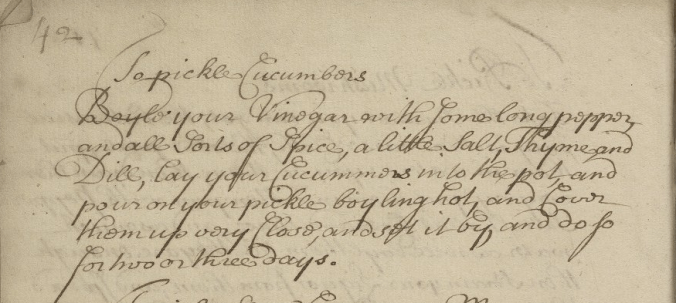 42
To pickle Cucumbers
Boyle your Vinegar with some long pepper,
and all Sorts of Spice, a little Salt, Thyme and
Dill, lay your Cucummers into the pot, and
pour on your pickle boyling hot, and Cover
them up very Close, and set it by, and do so
for two or three days.